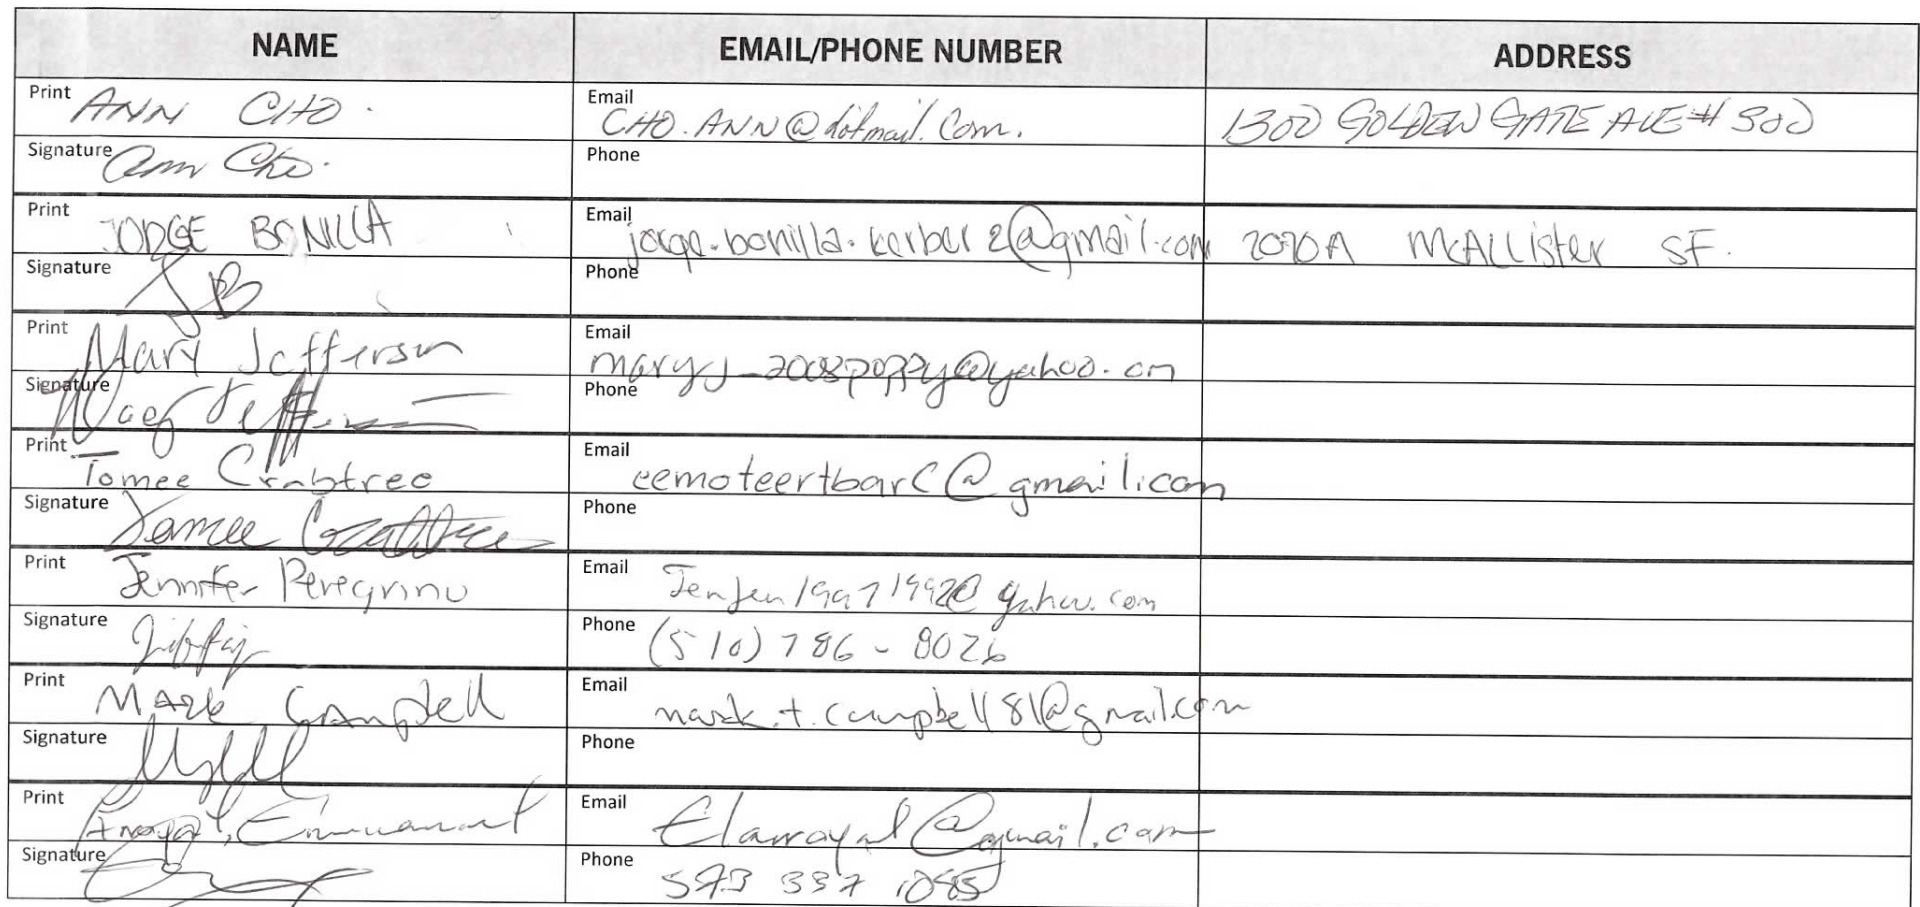 NAME EMAIL/PHONE NUMBER ADDRESS
Print ANN CHO. Email CHO.ANN@hotmail.com. 1300 GOLDEN GATE AVE # 300
Signature Ann Cho. Phone
Print JORGE BONILLA Email jorge.bonilla.kerber2@gmail.com 2070A McALLister SF.
Signature JB Phone
Print Mary Jefferson Email maryj_2008poppy@yahoo.om
Signature Mary Jefferson Phone
Print Tomee Crabtree Email eemoteertbarC@gmail.com
Signature Tomee Crabtree Phone
Print Jennifer Peregrino Email JenJen19971992@yahoo.com
Signature Phone (510) 786-8026
Print Mark Campbell Email mark.t.campbell81@gmail.com
Signature Phone
Print Emmanuel Email @gmail.com
Signature Phone 573 337 1085